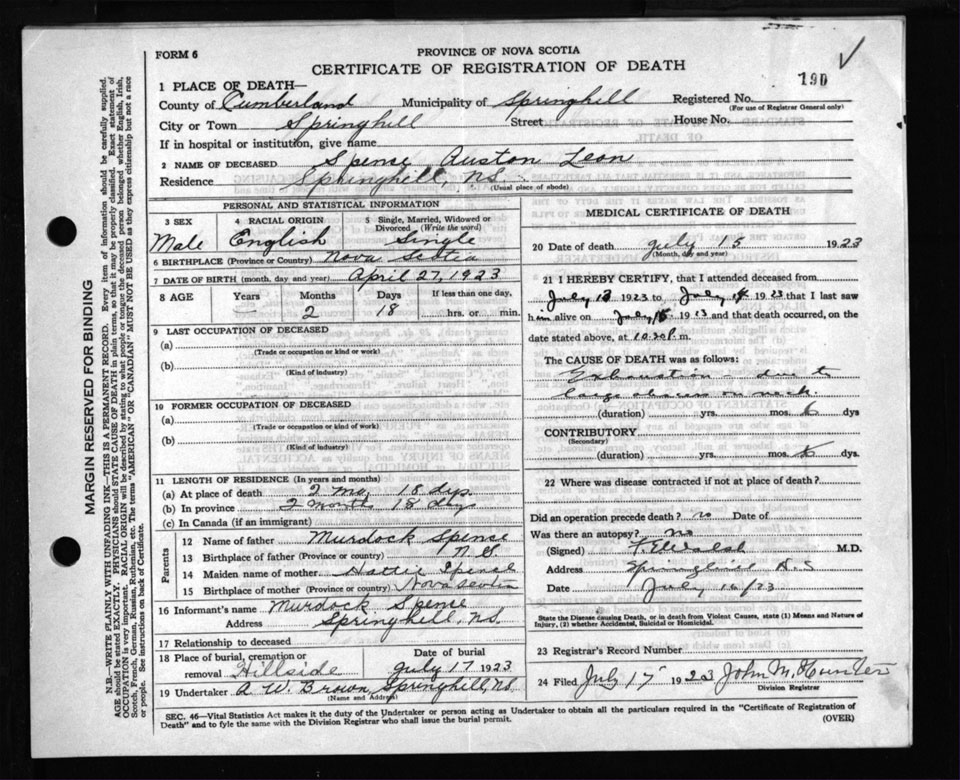 FORM 6
PROVINCE OF NOVA SCOTIA
CERTIFICATE OF REGISTRATION OF DEATH
190
1 PLACE OF DEATH—
County of Cumberland Municipality of Springhill Registered No.
(For use of Registrar General only)
City or Town Springhill Street House No.
If in hospital or institution, give name
2 NAME OF DECEASED Spense Auston Leon
Residence Springhill, N.S.
(Usual place of abode)
PERSONAL AND STATISTICAL INFORMATION
3 SEX 4 RACIAL ORIGIN 5 Single, Married, Widowed or Divorced (Write the word)
Male English Single
6 BIRTHPLACE (Province or Country) Nova Scotia
7 DATE OF BIRTH (month, day and year) April 27, 1923
8 AGE Years Months Days If less than one day,
— 2 18 hrs. or min.
9 LAST OCCUPATION OF DECEASED
(a)
(Trade or occupation or kind or work)
(b)
(Kind of industry)
10 FORMER OCCUPATION OF DECEASED
(a)
(Trade or occupation or kind of work)
(b)
(Kind of industry)
11 LENGTH OF RESIDENCE (In years and months)
(a) At place of death 2 mo. 18 dys.
(b) In province 2 months 18 days
(c) In Canada (if an immigrant)
Parents
12 Name of father Murdock Spense
13 Birthplace of father (Province or country) N.S.
14 Maiden name of mother Hattie Spense
15 Birthplace of mother (Province or country) Nova Scotia
16 Informant's name Murdock Spense
Address Springhill, N.S.
17 Relationship to deceased
18 Place of burial, cremation or removal Hillside Date of burial July 17 1923
19 Undertaker A. W. Brown, Springhill, N.S.
(Name and Address)
MEDICAL CERTIFICATE OF DEATH
20 Date of death July 15 1923
(Month, day and year)
21 I HEREBY CERTIFY, that I attended deceased from
July 13 1923 to July 1923 that I last saw
him alive on July 15 1923 and that death occurred, on the
date stated above, at m.
The CAUSE OF DEATH was as follows:
Exhaustion — due to
large abscess on neck
(duration) yrs. mos. 6 dys
CONTRIBUTORY
(Secondary)
(duration) yrs. mos. 6 dys.
22 Where was disease contracted if not at place of death?
Did an operation precede death? no Date of
Was there an autopsy? no
(Signed) Walsh M.D.
Address Springhill N.S
Date July 16/23
State the Disease causing Death, or in death from Violent Causes, state (1) Means and Nature of
Injury, (2) whether Accidental, Suicidal or Homicidal.
23 Registrar's Record Number
24 Filed July 17 1923 John M. Hunter
Division Registrar
SEC. 46—Vital Statistics Act makes it the duty of the Undertaker or person acting as Undertaker to obtain all the particulars required in the "Certificate of Registration of
Death" and to fyle the same with the Division Registrar who shall issue the burial permit.
(OVER)
MARGIN RESERVED FOR BINDING
N.B.—WRITE PLAINLY WITH UNFADING INK—THIS IS A PERMANENT RECORD. Every item of information should be carefully supplied.
AGE should be stated EXACTLY. PHYSICIANS should STATE CAUSE OF DEATH in plain terms, so that it may be properly classified. Exact statement of
OCCUPATION is very important. RACIAL ORIGIN will be described by stating to what people or tongue the deceased person belonged whether English, Irish,
Scotch, French, German, Russian, Ruthenian, etc. The terms "AMERICAN" OR "CANADIAN" MUST NOT BE USED as they express citizenship but not a race
or people. See instructions on back of Certificate.